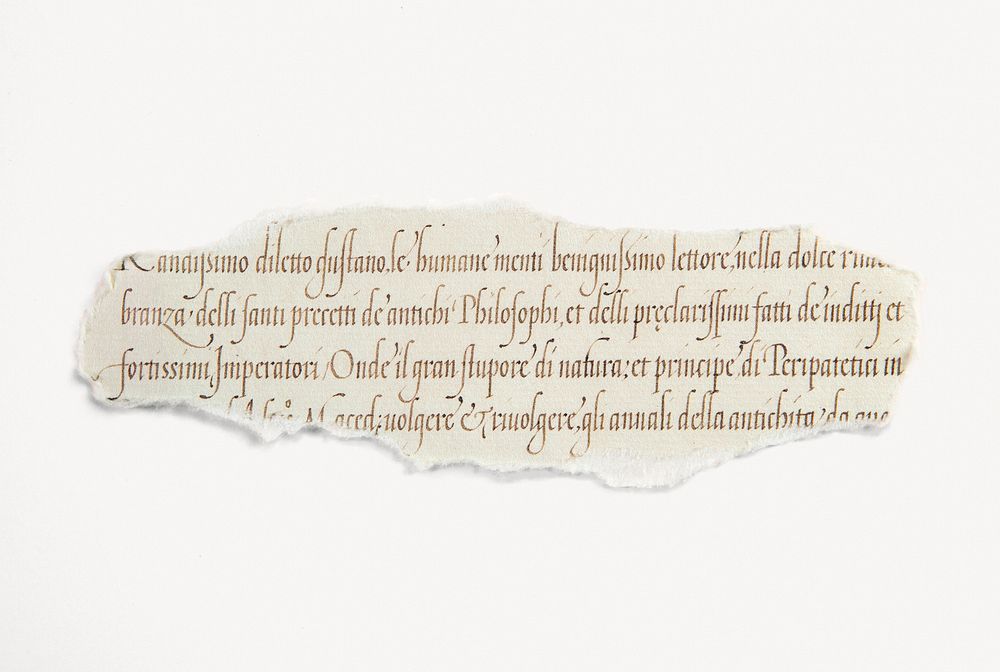 diletto gustano, le humane menti benignissimo lettore, nella dolce
branza delli santi precetti de antichi Philosophi, et delli pręclarissimi fatti de inditij et
fortissimi, Imperatori, Onde il gran stupore di natura; et principe, di Peripatetici in
Maced: volgere & rivolgere, gli annali della antichita, da